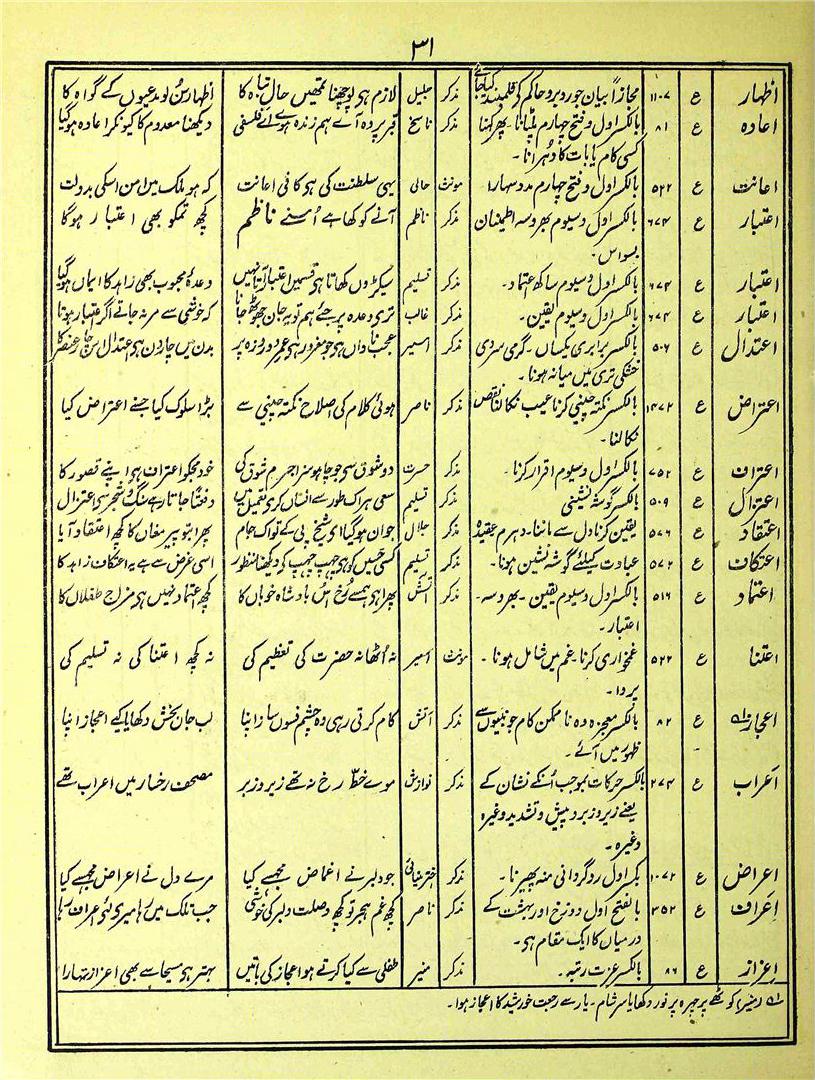 ۳۱
اظہار ع ۱۱۰۷ مجازاً بیان جو روبرو حاکم کے قلمبند کیا جائے مذکر جلیل لازم ہی پوچھنا تمھیں حال تباہ کا اظہار سُن لو مدعیوں کے گواہ کا
اعادہ ع ۸۱ بالکسر اول و فتح چہارم پلٹانا۔ پھر کہنا مذکر ناسخ قبر پر وہ آے ہم زندہ ہوے اے فلسفی دیکھنا معدوم کا کیونکر اعادہ ہو گیا
کسی کام یا بات کا دُہرانا۔
اعانت ع ۵۲۲ بالکسر اول و فتح چہارم مدد سہارا مونث حالی یہی سلطنت کی ہی کافی اعانت کہ ہو ملک میں امن اسکی بدولت
اعتبار ع ۶۷۴ بالکسر اول و سیوم بھروسہ اطمینان مذکر ناظم آنے کو کہا ہے اُسنے ناظم کچھ تمکو بھی اعتبار ہوگا
بسواس۔
اعتبار ع ۶۷۴ بالکسر اول و سیوم ساکھ اعتماد۔ مذکر تسلیم سیکڑوں کھاتا ہی قسمیں اعتبار آتا نہیں وعدۂ محبوب بھی زاہد کا ایماں ہو گیا
اعتبار ع ۶۷۴ بالکسر اول و سیوم یقین۔ مذکر غالب تری وعدہ پر جئے ہم تو یہ جان جھوٹھ جانا کہ خوشی سے مر نہ جاتے اگر اعتبار ہوتا
اعتدال ع ۵۰۶ بالکسر برابری یکساں۔ گرمی سردی مذکر اسیر عجب ناداں ہی جو مغرور ہی عمر دوروزہ پر بدن میں چار دن ہی اعتدال اس چار عنصر کا
خشکی تری میں میانہ ہونا۔
اعتراض ع ۱۴۷۲ بالکسر نکتہ چینی کرنا عیب نکالنا نقص مذکر ناصر ہوئی کلام کی اصلاح نکتہ چینی سے بڑا سلوک کیا جسنے اعتراض کیا
نکالنا۔
اعتراف ع ۷۵۲ بالکسر اول و سیوم اقرار کرنا۔ مذکر حسرت دو شوق سی جو چاہو سزا جرم شوق کی خود مجکو اعتراف ہی اپنے قصور کا
اعتزال ع ۵۰۹ بالکسر گوشہ نشینی مذکر تسلیم سعی ہر اک طور سے انساں کری تعمیل میں دفعتاً جاتا رہے سنگ و شجر سی اعتزال
اعتقاد ع ۵۷۶ یقین کرنا دل سے ماننا۔ دہرم عقیدہ مذکر جلال جوان ہو گیا ای شیخ پی کے تو اک جام پھر ابتو پیر مغاں کا کچھ اعتقاد آیا
اعتکاف ع ۵۷۲ عبادت کیلئے گوشہ نشین ہونا۔ مذکر تسلیم کسی حسیں کو ہی چھپ چھپ کی دیکھنا منظور اسی غرض سے ہے یہ اعتکاف زاہد کا
اعتماد ع ۵۱۶ بالکسر اول و سیوم یقین۔ بھروسہ۔ مذکر آتش پھرا ہی ہمسے رُخ اس بادشاہ خوباں کا کچھ اعتماد نہیں ہی مزاج طفلاں کا
اعتبار۔
اعتنا ع ۵۲۲ غمخواری کرنا۔ غم میں شامل ہونا۔ مونث اسیر نہ اُٹھا نہ حضرت کی تعظیم کی نہ کچھ اعتنا کی نہ تسلیم کی
پروا۔
اعجاز؎۱ ع ۸۲ بالکسر معجزہ وہ ناممکن کام جو نبیوں سے مذکر آتش کام کرتی رہی وہ چشم فسوں ساز اپنا لب جاں بخش دکھایا کیے اعجاز اپنا
ظہور میں آئے۔
اَعراب ع ۲۷۴ بالکسر حرکات بموجب اُنکے نشان کے مذکر نوازش موے خط رخ نہ تھے زیر و زبر مصحف رخسار میں اعراب تھے
یعنے زیر و زبر و پیش و تشدید وغیرہ
وغیرہ۔
اعراض ع ۱۰۷۲ بکسر اول روگردانی منہ پھیرنا۔ مذکر اختر مینائی جو دلبر نے اغماض مجھسے کیا مرے دل نے اعراض مجھسے کیا
اَعراف ع ۳۵۲ بالفتح اول دوزخ اور بہشت کے مذکر ناصر کچھ غم ہجر تو کچھ وصلت دلبر کی خوشی جب تلک میں رہا میری لئی اعراف رہا
درمیاں کا ایک مقام ہی۔
اِعزاز ع ۸۶ بالکسر عزت رتبہ۔ مذکر منیر طفلی سے کیا کرتے ہو اعجاز کی باتیں بہتر ہی مسیحا سے بھی اعزاز تمہارا
؎۱ (منیر) کوٹھے پر چہرہ پر نور دکھایا سر شام۔ یار سے رجعت خورشید کا اعجاز ہوا۔